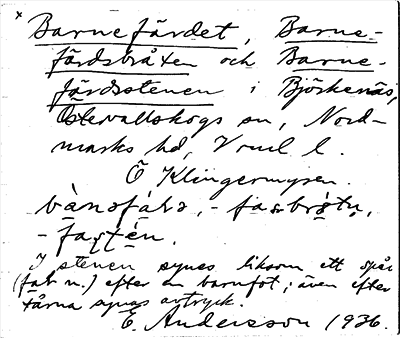 x Barnefärdet, Barne-
färdsbråten och Barne-
färdsstenen i Björkenäs,
Östervallskogs sn, Nord-
marks hd, Vrml l.
Ö Klingermyren.
-
I stenen synes liksom ett spår
(fat n.) efter en barnfot; även efter
tårna synes avtryck.
E. Andersson 1936.